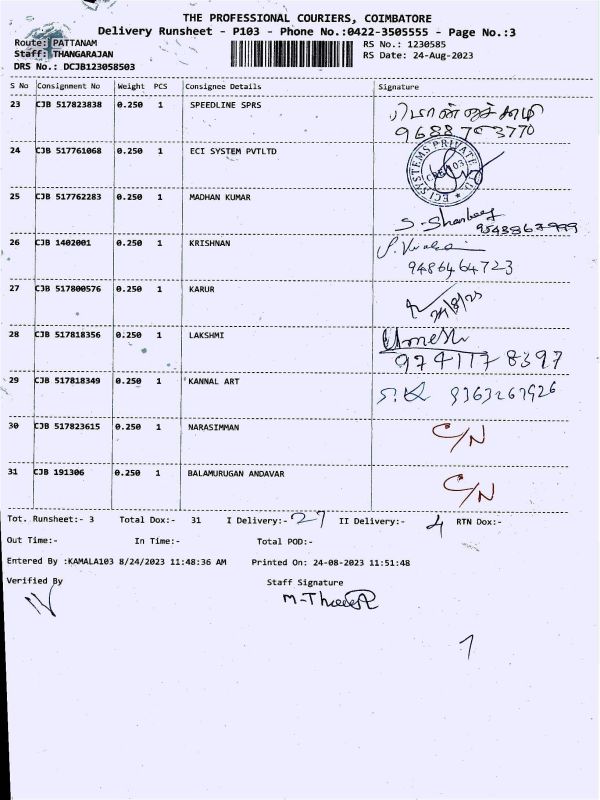 THE PROFESSIONAL COURIERS, COIMBATORE
Delivery Runsheet - P103 - Phone No.:0422-3505555 - Page No.:3
Route: PATTANAM
RS No.: 1230585
Staff: THANGARAJAN
RS Date: 24-Aug-2023
DRS No.: DCJB123058503
S No Consignment No Weight PCS Consignee Details Signature
23 CJB 517823838 0.250 1 SPEEDLINE SPRS
24 CJB 517761068 0.250 1 ECI SYSTEM PVTLTD
ECI SYSTEMS PRIVATE LTD
25 CJB 517762283 0.250 1 MADHAN KUMAR
26 CJB 1402001 0.250 1 KRISHNAN
9486464723
27 CJB 517800576 0.250 1 KARUR
24/8/23
28 CJB 517818356 0.250 1 LAKSHMI Umesh
9741178397
29 CJB 517818349 0.250 1 KANNAL ART S.K 9363267926
30 CJB 517823615 0.250 1 NARASIMMAN C/N
31 CJB 191306 0.250 1 BALAMURUGAN ANDAVAR C/N
Tot. Runsheet:- 3 Total Dox:- 31 I Delivery:- 27 II Delivery:- 4 RTN Dox:-
Out Time:- In Time:- Total POD:-
Entered By :KAMALA103 8/24/2023 11:48:36 AM Printed On: 24-08-2023 11:51:48
Verified By Staff Signature
1